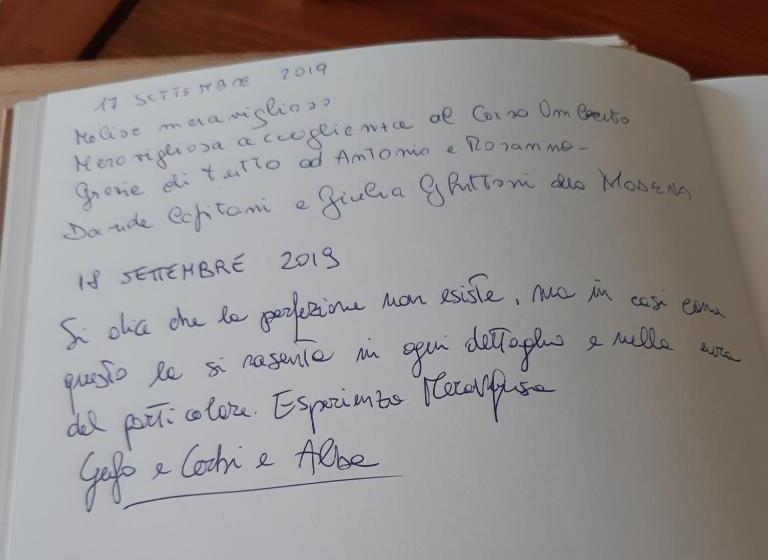 17 SETTEMBRE 2019
Molise meraviglioso
Meravigliosa accoglienza al Corso Umberto
Grazie di tutto ad Antonio e Rosanna -
Davide Capitani e Giulia da MODENA
18 SETTEMBRE 2019
Si dica che la perfezione non esiste, ma in casi come
questo la si rasenta in ogni dettaglio e nella cura
del particolare. Esperienza Meravigliosa
e e Alba